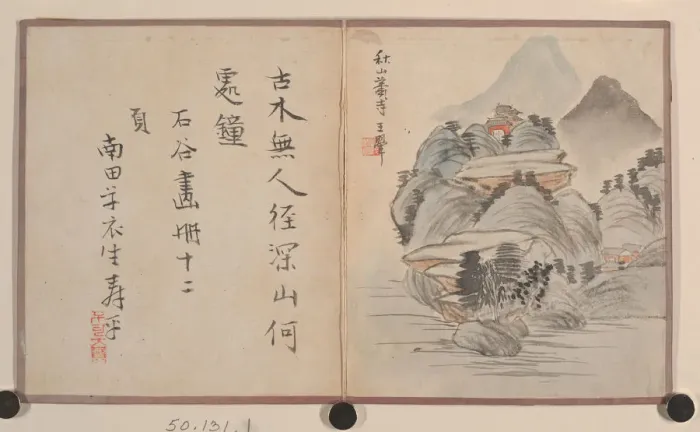 秋山蕭寺 王翬
古木無人径深山何
處鐘
石谷畫冊十二
頁
南田草衣生壽平
50.131.1